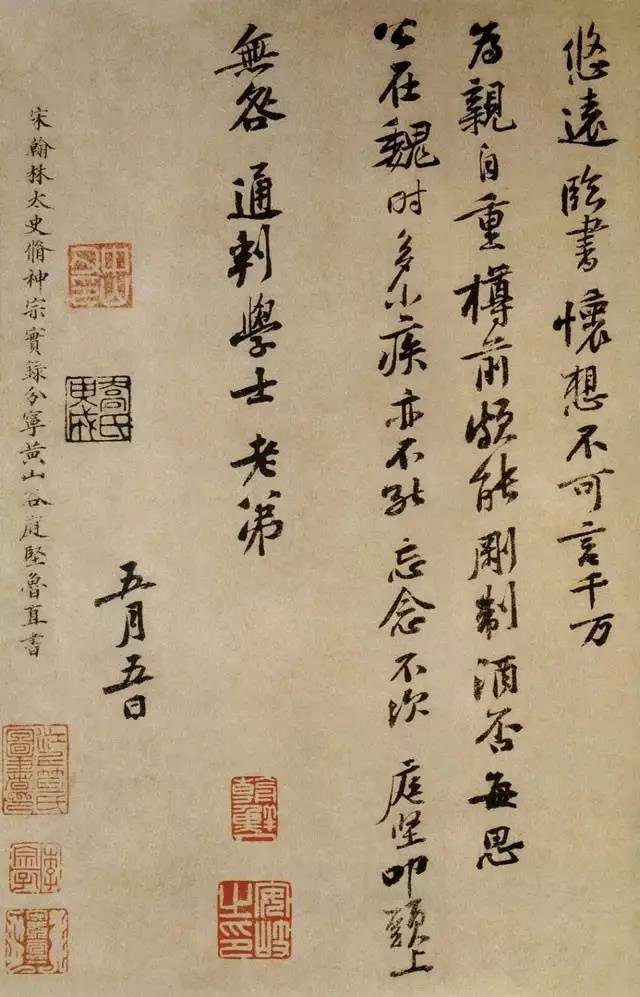 悠遠臨書懷想不可言千万
為親自重樽前頗能剛制酒否每思
公在魏时多小疾亦不能忘念不次 庭坚叩頭上
無咎 通判學士 老弟
安岐之印
五月五日
宋翰林太史脩神宗實錄分寧黃山谷庭堅魯直書